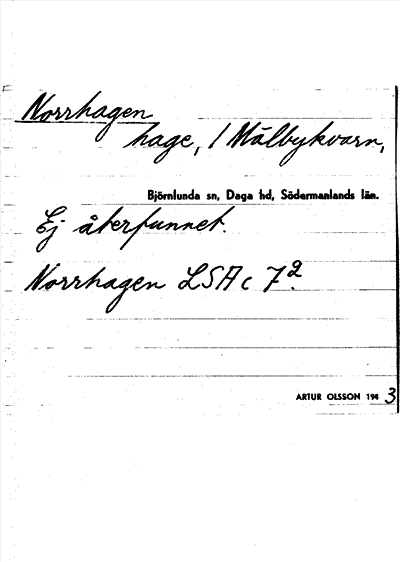 Norrhagen
hage, / Målbykvarn,
Björnlunda sn, Daga hd, Södermanlands län.
Ej återfunnet.
Norrhagen LSA c 7².
ARTUR OLSSON 1943